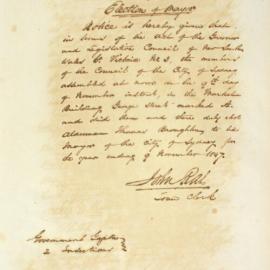 Election of Mayor
Notice is hereby given that
in terms of the Act of the Governor
and Legislative Council of New South
Wales 6th Victoria No 3, the members
of the Council of the City of Sydney
assembled at noon on the 9th day
of November instant, in the Market
Building George Street marked A.
and did then and there duly elect
Alderman Thomas Broughton to be
Mayor of the City of Sydney for
the year ending 9 November 1847.
John Rae
Town Clerk
Government Gazette
2 Insertions